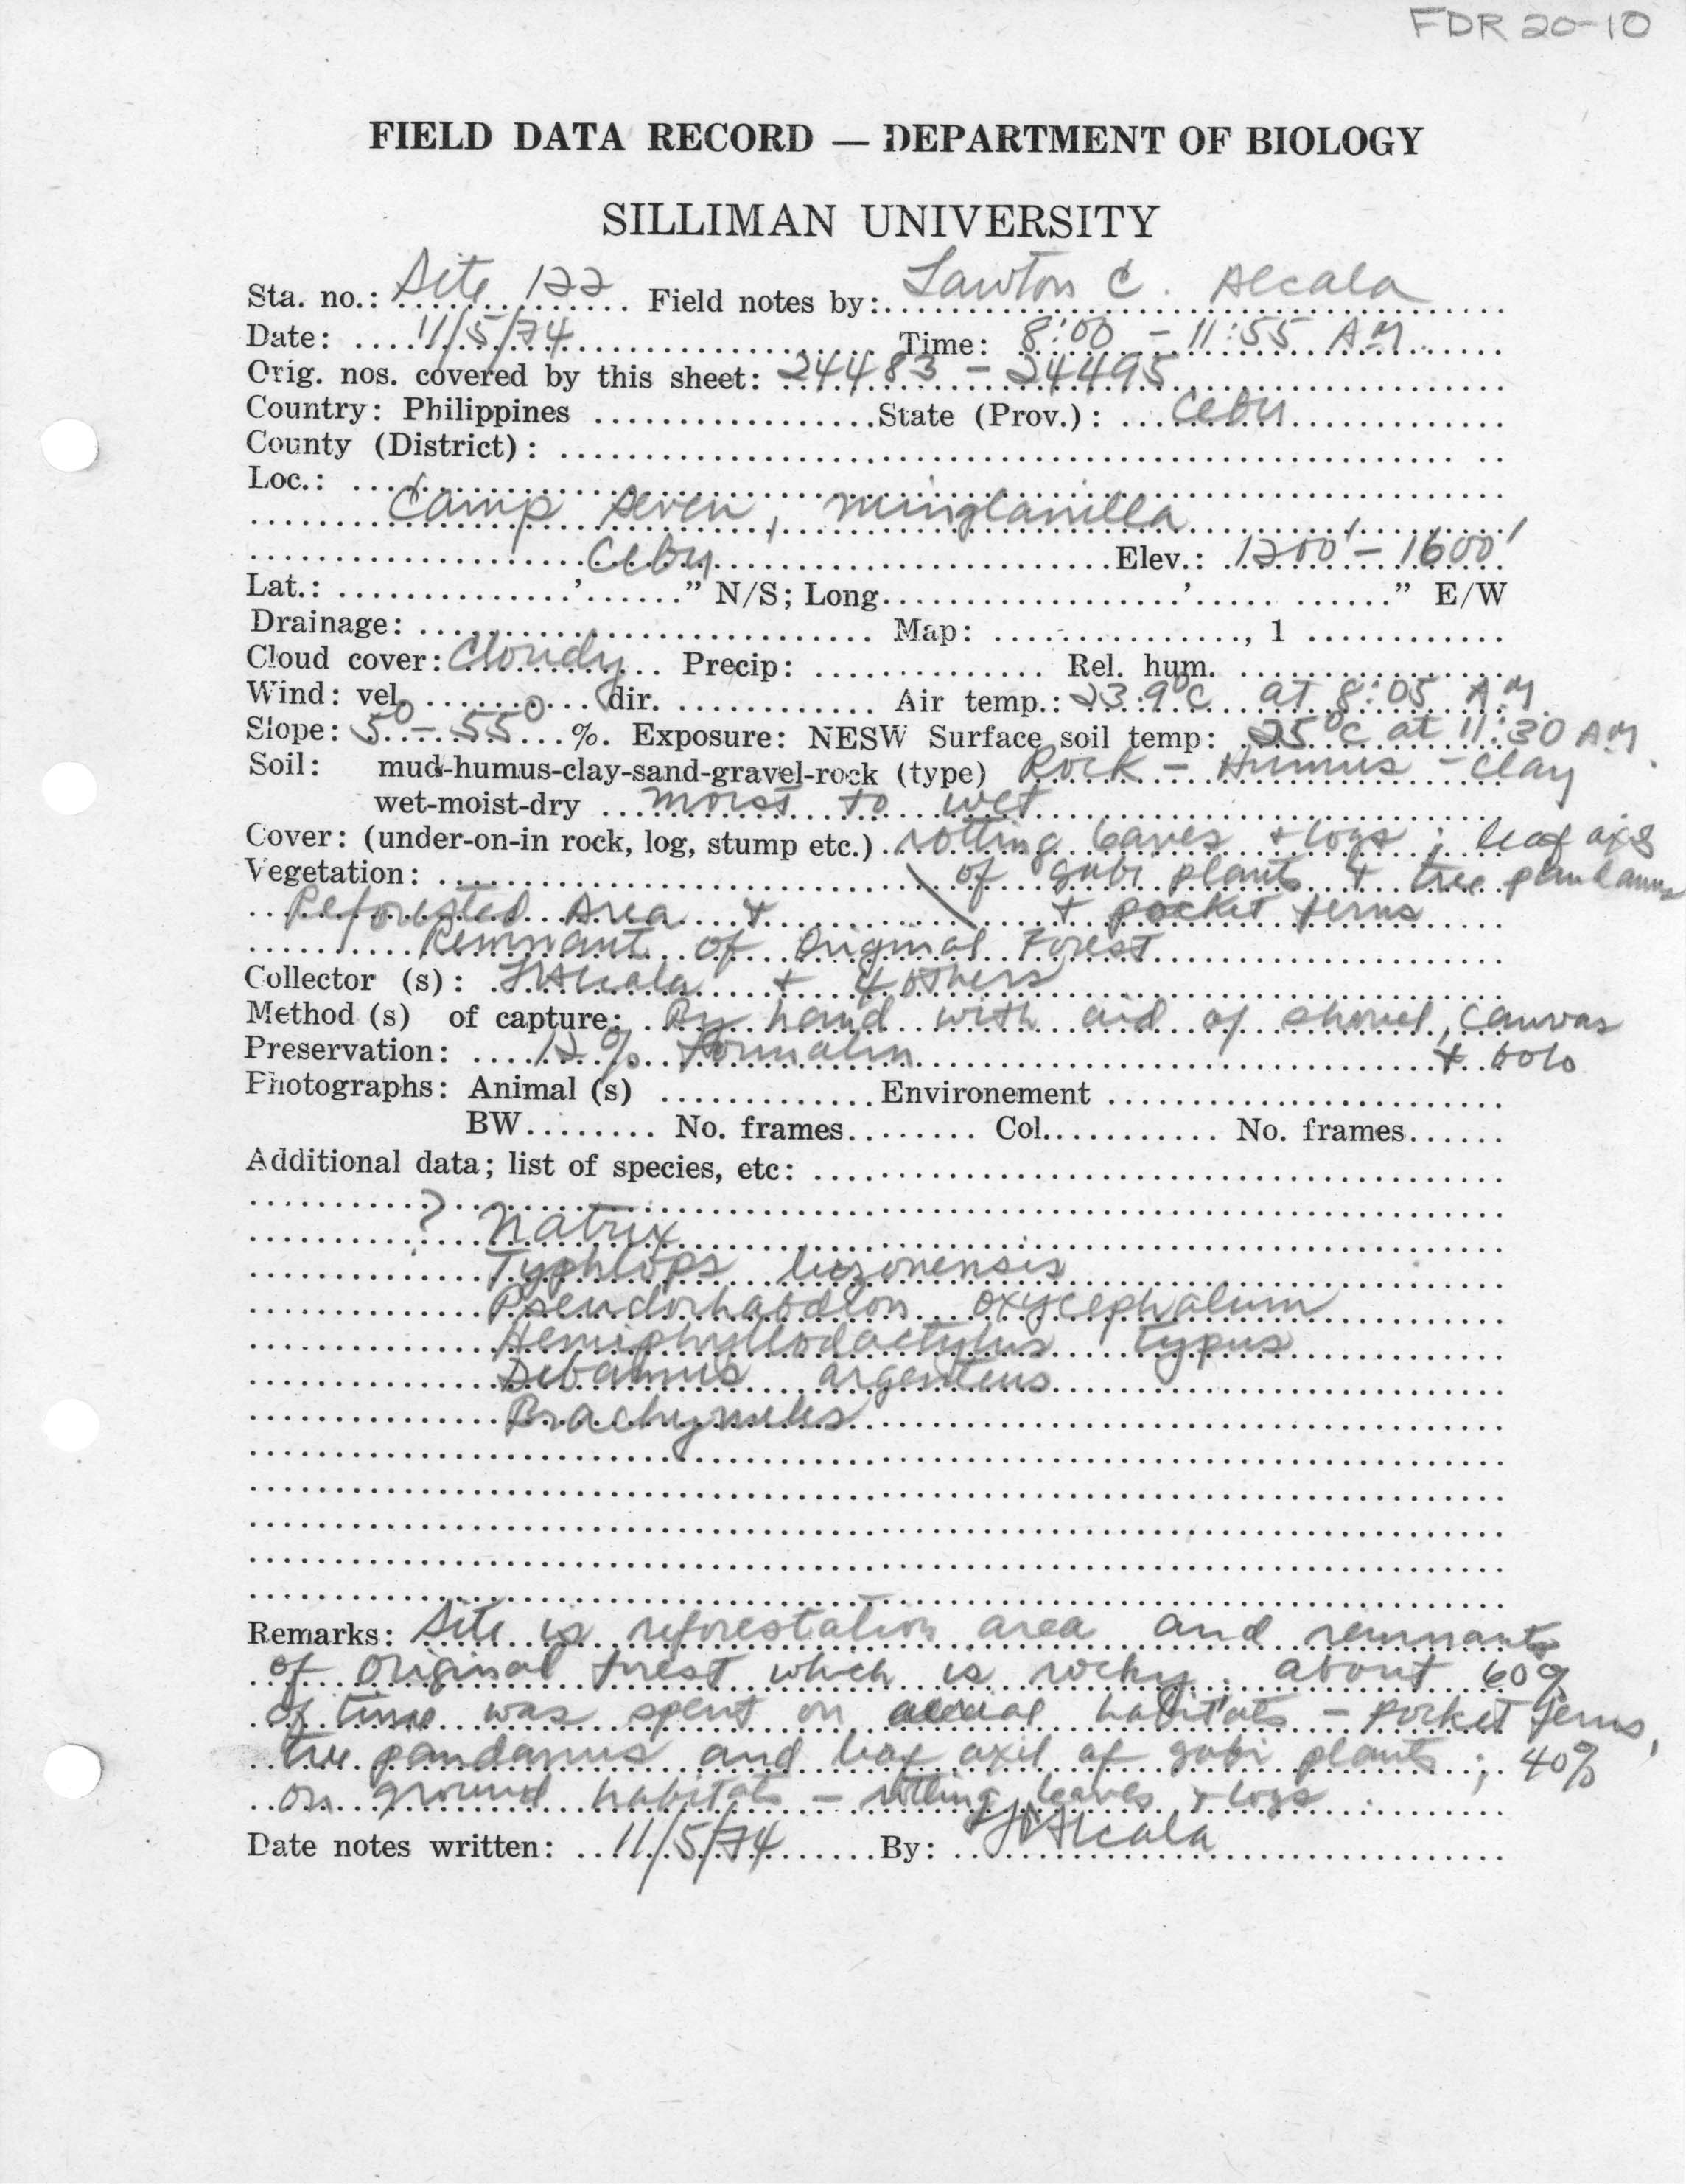 FDR 20-10
FIELD DATA RECORD — DEPARTMENT OF BIOLOGY
SILLIMAN UNIVERSITY
Sta. no.: Site 122 Field notes by: Lawton C. Alcala
Date: 11/5/74 Time: 8:00 - 11:55 AM
Orig. nos. covered by this sheet: 24483 - 24495
Country: Philippines State (Prov.): Cebu
County (District):
Loc.:
Camp Seven, Minglanilla
Cebu Elev.: 1200' - 1600'
Lat.: ' " N/S; Long. ' " E/W
Drainage: Map: , 1
Cloud cover: Cloudy Precip: Rel. hum.
Wind: vel. dir. Air temp.: 23.9°C at 8:05 AM
Slope: 5° - 55° %. Exposure: NESW Surface soil temp: 25°C at 11:30 AM
Soil: mud-humus-clay-sand-gravel-rock (type) Rock - Humus - Clay
wet-moist-dry moist to wet
Cover: (under-on-in rock, log, stump etc.) rotting leaves + logs; leaf axis
Vegetation: of gabi plants + tree pandanus
Reforested Area + + pocket ferns
Remnant of Original Forest
Collector (s): LAlcala + 4 others
Method (s) of capture: By hand with aid of shovel, canvas
Preservation: 12% Formalin + bolo
Photographs: Animal (s) Environement
BW No. frames Col. No. frames
Additional data; list of species, etc:
? Natrix
Typhlops luzonensis
Pseudorhabdion oxycephalum
Hemiphyllodactylus typus
Dibamus argenteus
Brachymeles
Remarks: Site is reforestation area and remnants
of original forest which is rocky. about 60%
of time was spent on aerial habitats - pocket ferns,
tree pandanus and leaf axil of gabi plants; 40%
on ground habitats - rotting leaves + logs.
Date notes written: 11/5/74 By: LAlcala